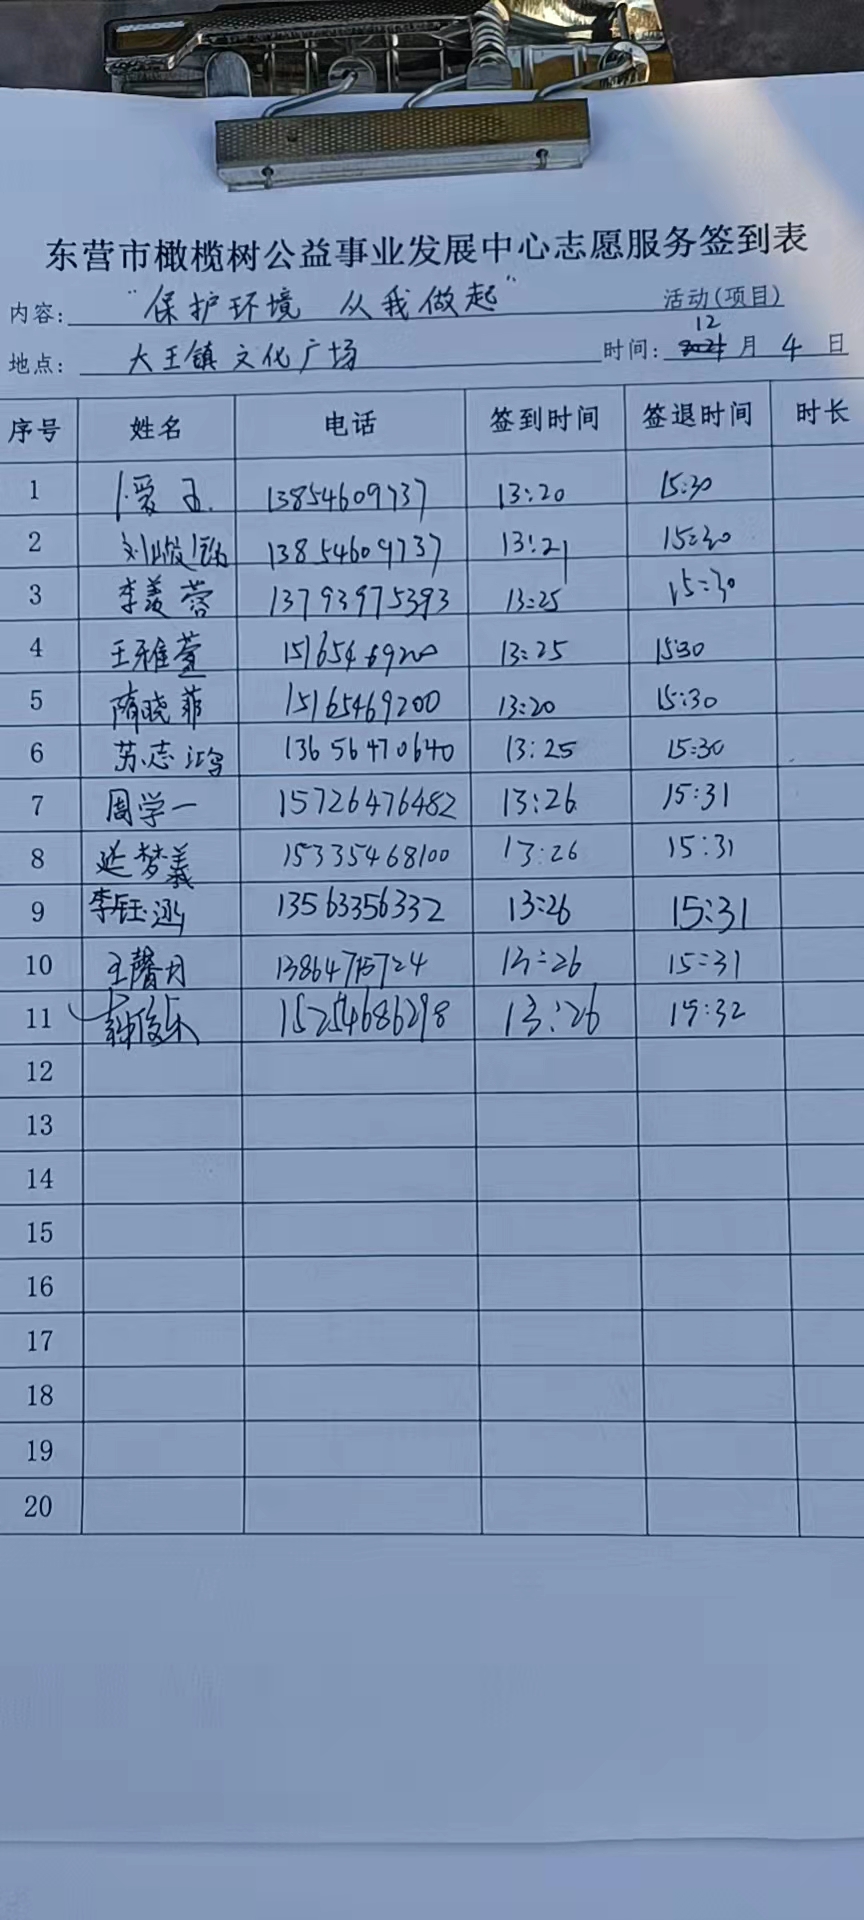 东营市橄榄树公益事业发展中心志愿服务签到表
内容： "保护环境 从我做起" 活动(项目)
地点： 大王镇文化广场 时间： 12 月 4 日
序号 姓名 电话 签到时间 签退时间 时长
1 13854609737 13:20 15:30
2 13854609737 13:21 15:30
3 李美蓉 13793975393 13:25 15:30
4 王雅萱 15165469200 13:25 15:30
5 隋晓菲 15165469200 13:20 15:30
6 苏志鸿 13656470640 13:25 15:30
7 周学一 15726476482 13:26 15:31
8 延梦羲 15335468100 13:26 15:31
9 李钰涵 13563356332 13:26 15:31
10 王馨月 13864715724 13:26 15:31
11 15254686298 13:26 15:32
12
13
14
15
16
17
18
19
20